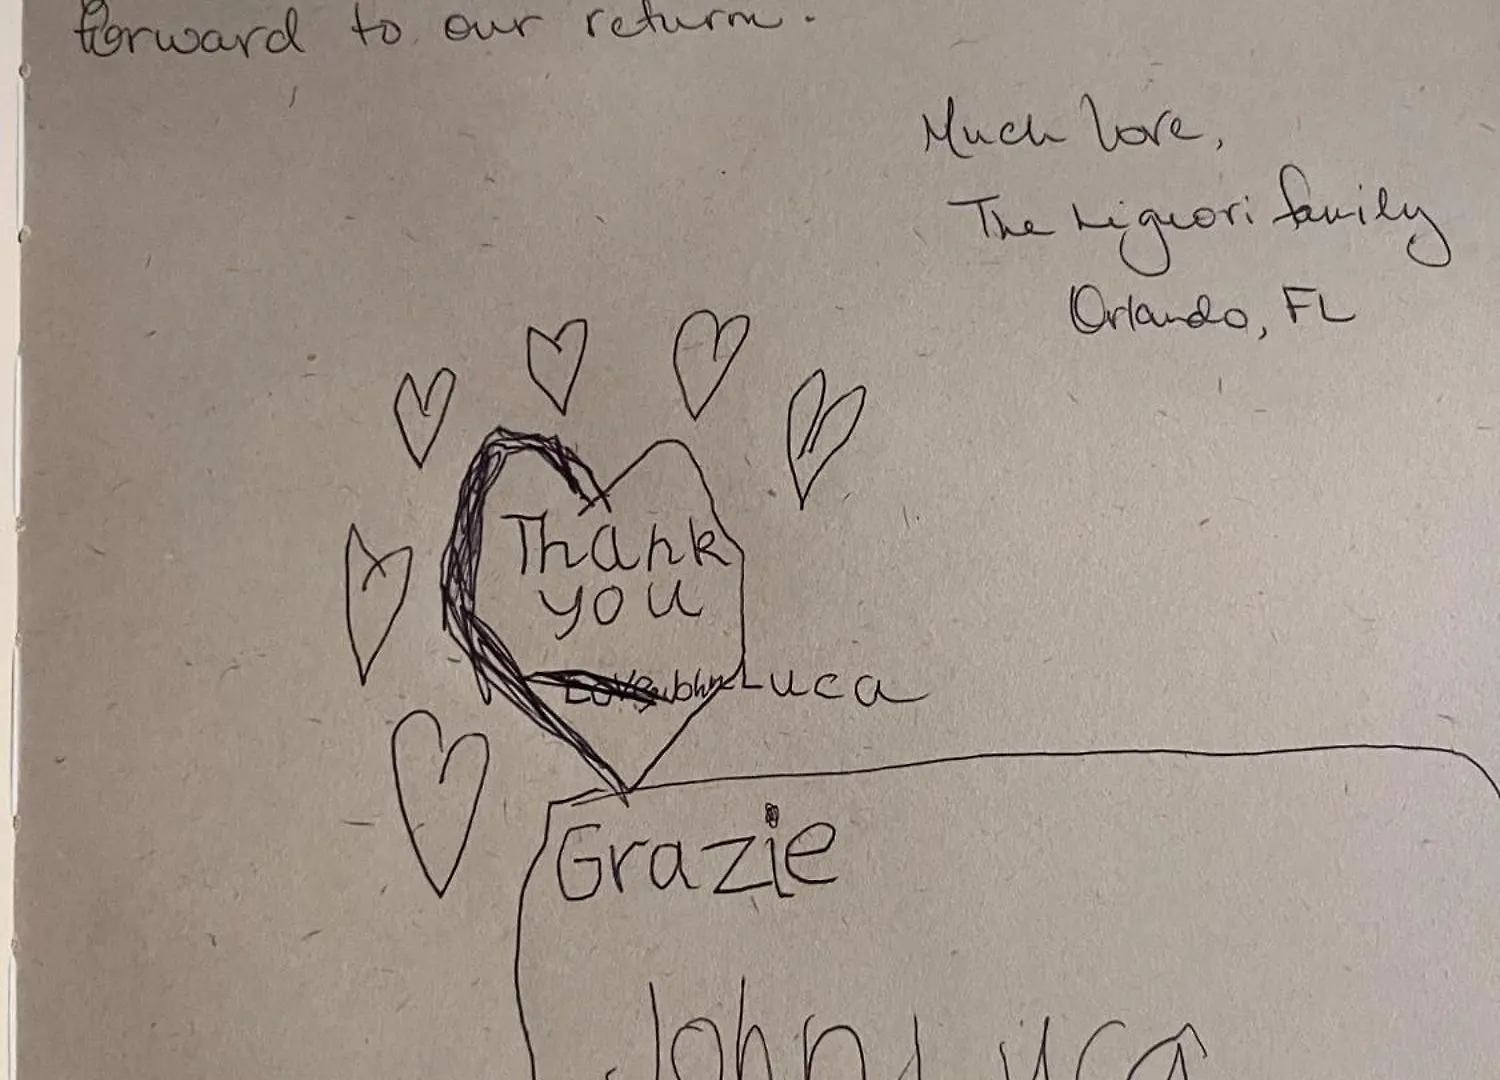 forward to our return.
Much love,
The Liguori family
Orlando, FL
Thank
you
Love, John Luca
Grazie
John Luca